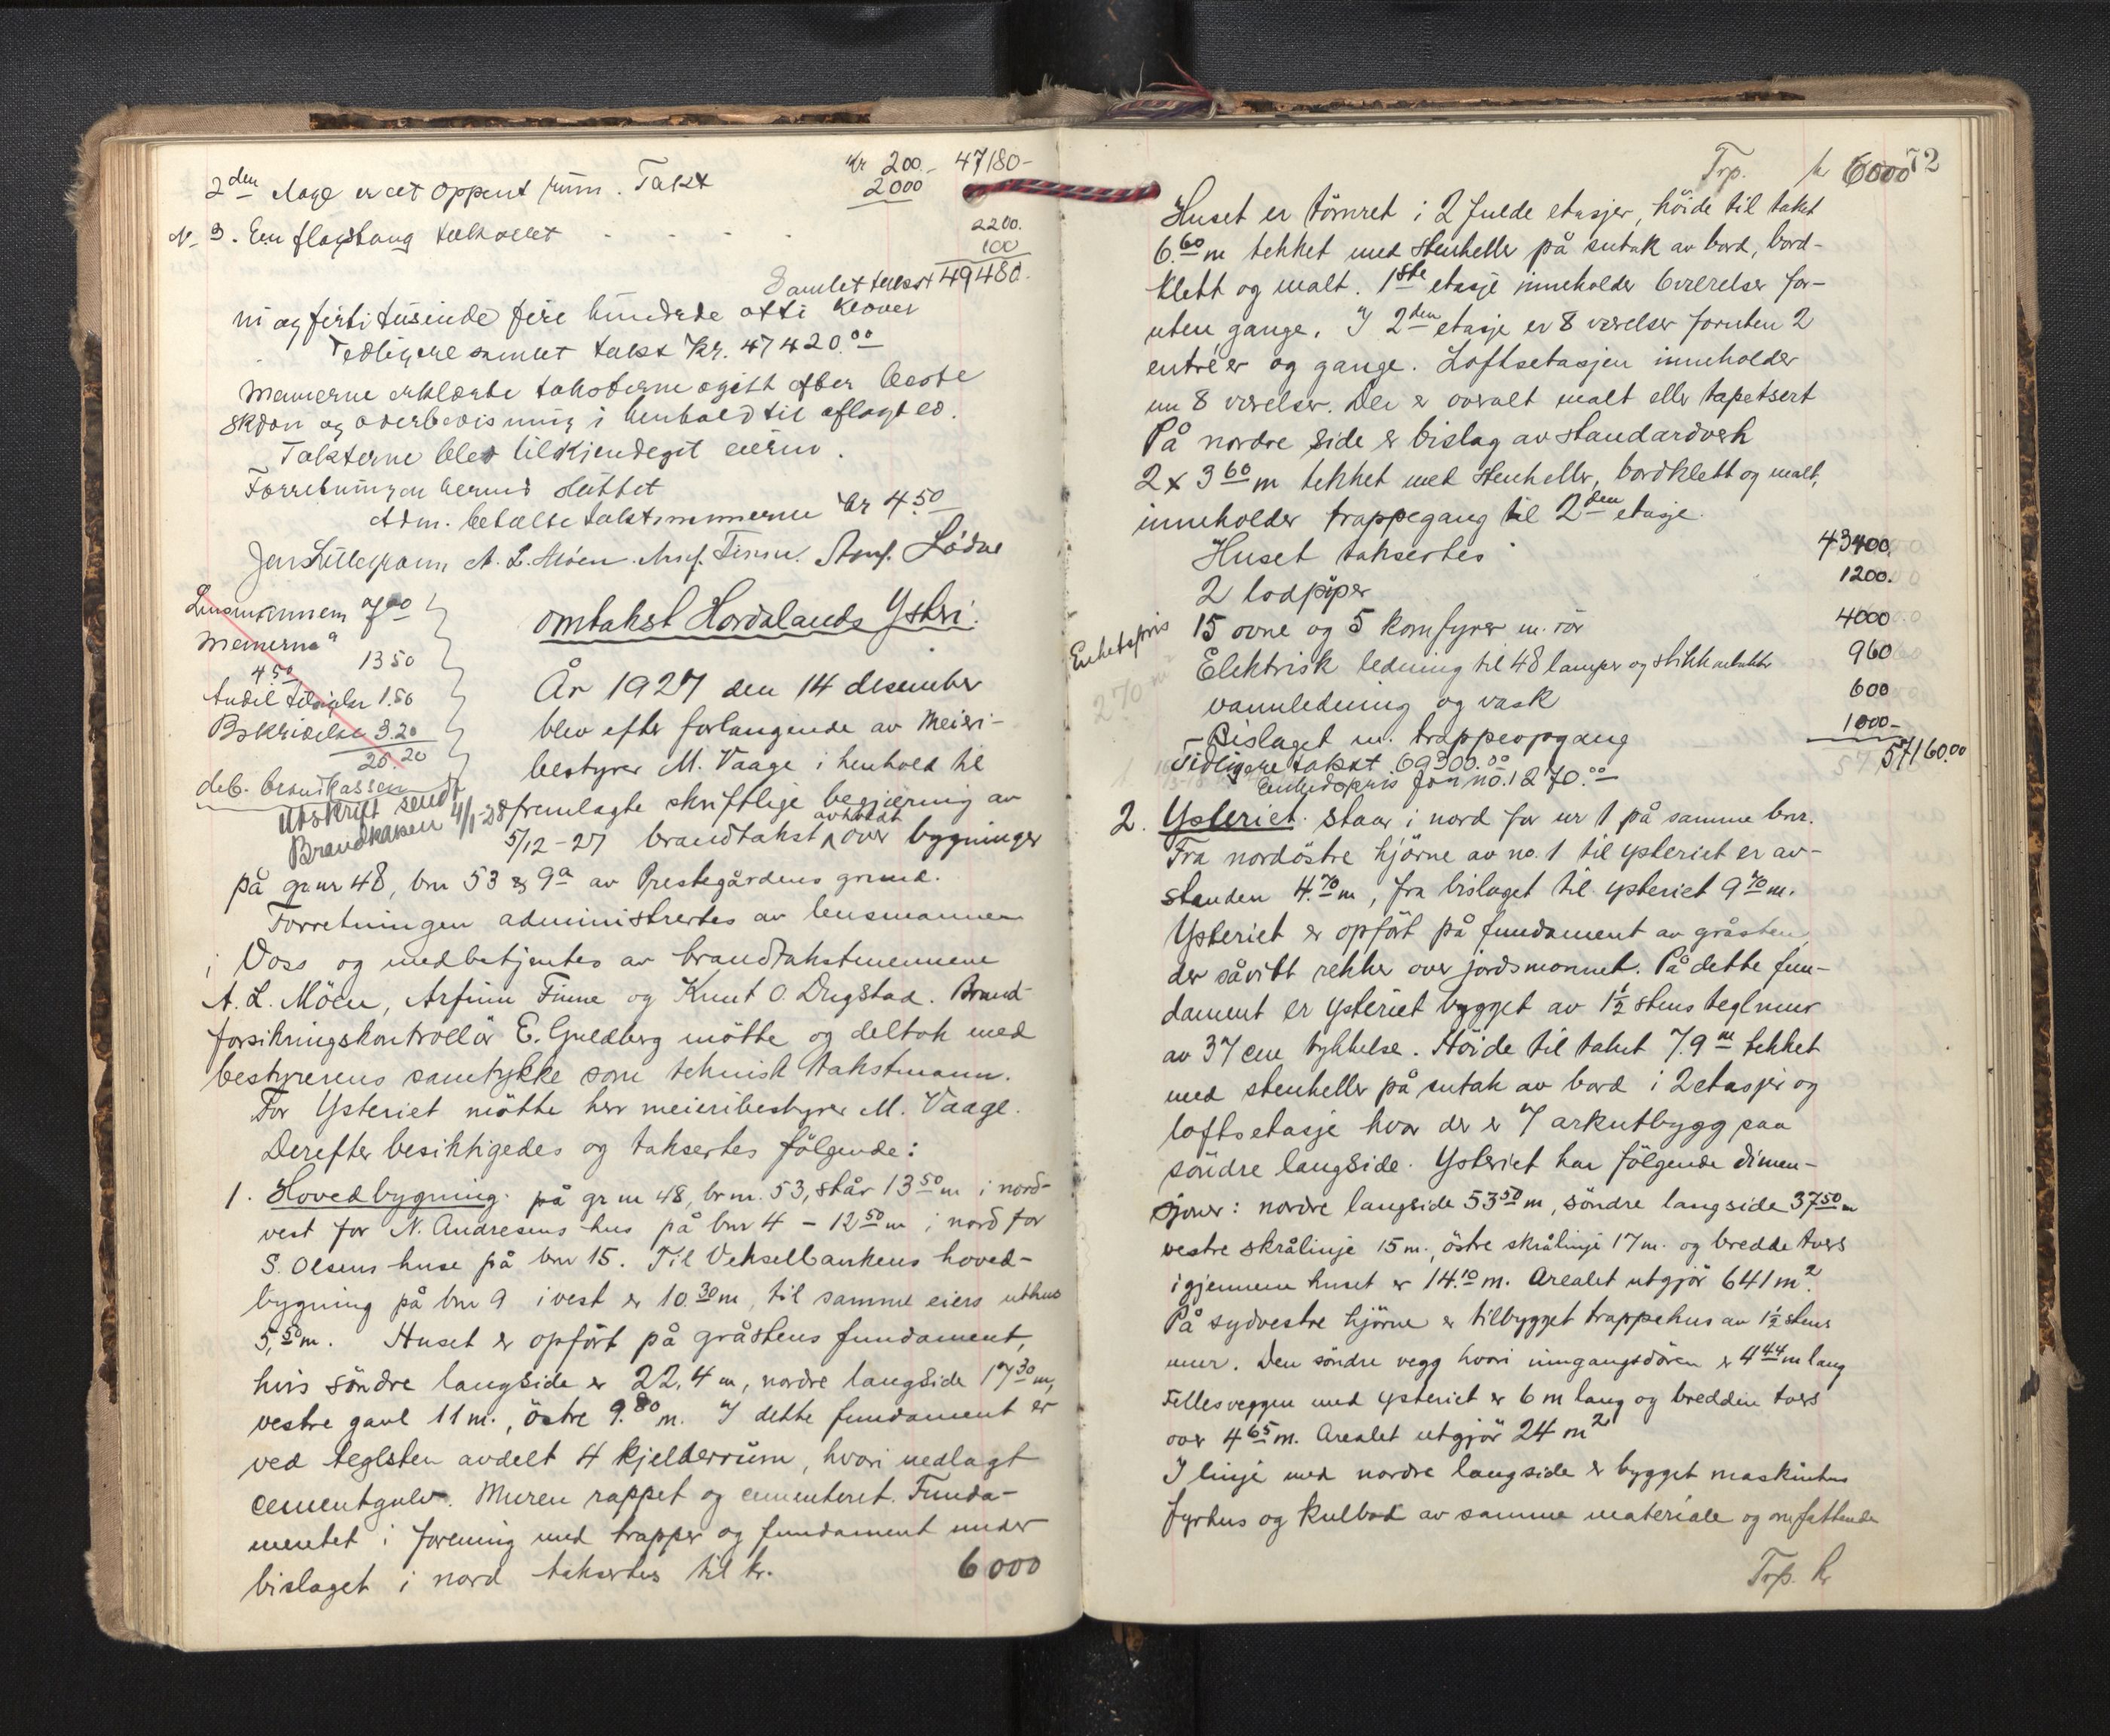 Kr 200.- 47180-
2den etage er et oppent rum. Takst 2000
2200.
N. 3. Een flagstang taksert - - - - 100
Samlet takst 49480.
ni og firti tusinde fire hundrede otti kroner
Tedligere samlet takst Kr. 47420.00
Mennerne erklærte taksterne avgitt efter beste
skjøn og overbevisning i henhold til aflagt ed.
Taksterne blev tilkjendegit eieren.
Forretningen hermed sluttet
Adm. betalte takstmennerne kr 4.50
A. L. Möen.
Lensmannen 7.00
Mennerne a
4.50 13 50
Andel 1.50
3.20
25 20
deb. brandkassen
Utskrift sendt
Brandkassen 4/1-28
omtakst Hordalands Ysteri.
År 1927 den 14 desember
blev efter forlangende av Meieri-
bestyrer M. Vaage i henhold til
fremlagte skriftlige begjæring av
avholdt
5/12-27 brandtakst over bygninger
på gr nr 48, bnr 53 og 9a av Prestegårdens grund.
Forretningen administrertes av lensmannen
i Voss og medbetjentes av brandtakstmennene
A. L. Möen, Arfinn Finne og Knut O. Dugstad. Brand-
forsikringskontrollör E. Guldberg mötte og deltok med
bestyrerens samtykke som teknisk takstmann.
For Ysteriet mötte herr meieribestyrer M. Vaage.
Derefter besiktigedes og taksertes fölgende:
1. Hovedbygning. på gr nr 48, br nr. 53, står 13 50 m i nord-
vest for N. Andresens hus på bnr 4 - 12 50 m i nord for
S. Olsens huse på bnr 15. Til Vekselbankens hoved-
bygning på bnr 9 i vest er 10.30 m, til samme eiers uthus
5,50 m. Huset er opfört på gråstens fundament,
hvis söndre langside er 22.4 m, nordre langside 17 30 m,
vestre gavl 11 m., östre 9.80 m. I dette fundament er
ved teglsten avdelt 4 kjelderrum, hvori nedlagt
cementgulv. Muren rappet og cementeret. Funda-
mentet i forening med trapper og fundament under
bislaget i nord taksertes til kr. 6000
72
Trp. kr 6000
Huset er tömret i 2 fulde etasjer, höide til taket
6.60 m tekket med stenheller på sutak av bord, bord-
klett og malt. 1ste etasje inneholder 6 værelser for-
uten gange. I 2den etasje er 8 værelser foruten 2
entréer og gange. Loftsetasjen inneholder
nu 8 værelser. Der er overalt malt eller tapetsert
På nordre side er bislag av standardverk
2 x 3 60 m tekket med stenheller, bordklett og malt,
inneholder trappegang til 2den etasje.
Huset taksertes 43400
2 lodpiper 1200.
15 ovne og 5 komfyrer m. rör 4000
Enhetspris
270
Elektrisk ledning til 48 lamper og stikkontakter 960
vannledning og vask 600
- Bislaget m. trappeopgang 1000-
57160.00
Tidligere takst 69300.00
Enhedspris for no. 1 270.00
2. Ysteriet. Staar i nord for nr 1 på samme bnr.
Fra nordöstre hjörne av no. 1 til ysteriet er av-
standen 4.70 m, fra bislaget til ysteriet 9 70 m.
Ysteriet er opfört på fundament av gråsten,
der såvitt rekker over jordsmonnet. På dette fun-
dament er ysteriet bygget av 1½ stens teglmur
av 37 cm tykkelse. Höide til taket 7.9 m tekket
med stenheller på sutak av bord i 2 etasjer og
loftsetasje hvor der er 7 arkutbygg paa
söndre langside. Ysteriet har fölgende dimen-
sjoner: nordre langside 53 50 m, söndre langside 37 50 m
vestre skrålinje 15 m., östre skrålinje 17 m. og bredde tvers
igjennem huset er 14.10 m. Arealet utgjör 641 m2.
På sydvestre hjörne er tilbygget trappehus av 1½ stens
mur. Den söndre vegg hvori inngangsdören er 4 44 m lang
Fellesveggen med ysteriet er 6 m lang og bredden tvers
over 4 65 m. Arealet utgjör 24 m2
I linje med nordre langside er bygget maskinhus
fyrhus og kulbod av samme materiale og omfattende
Trp. kr